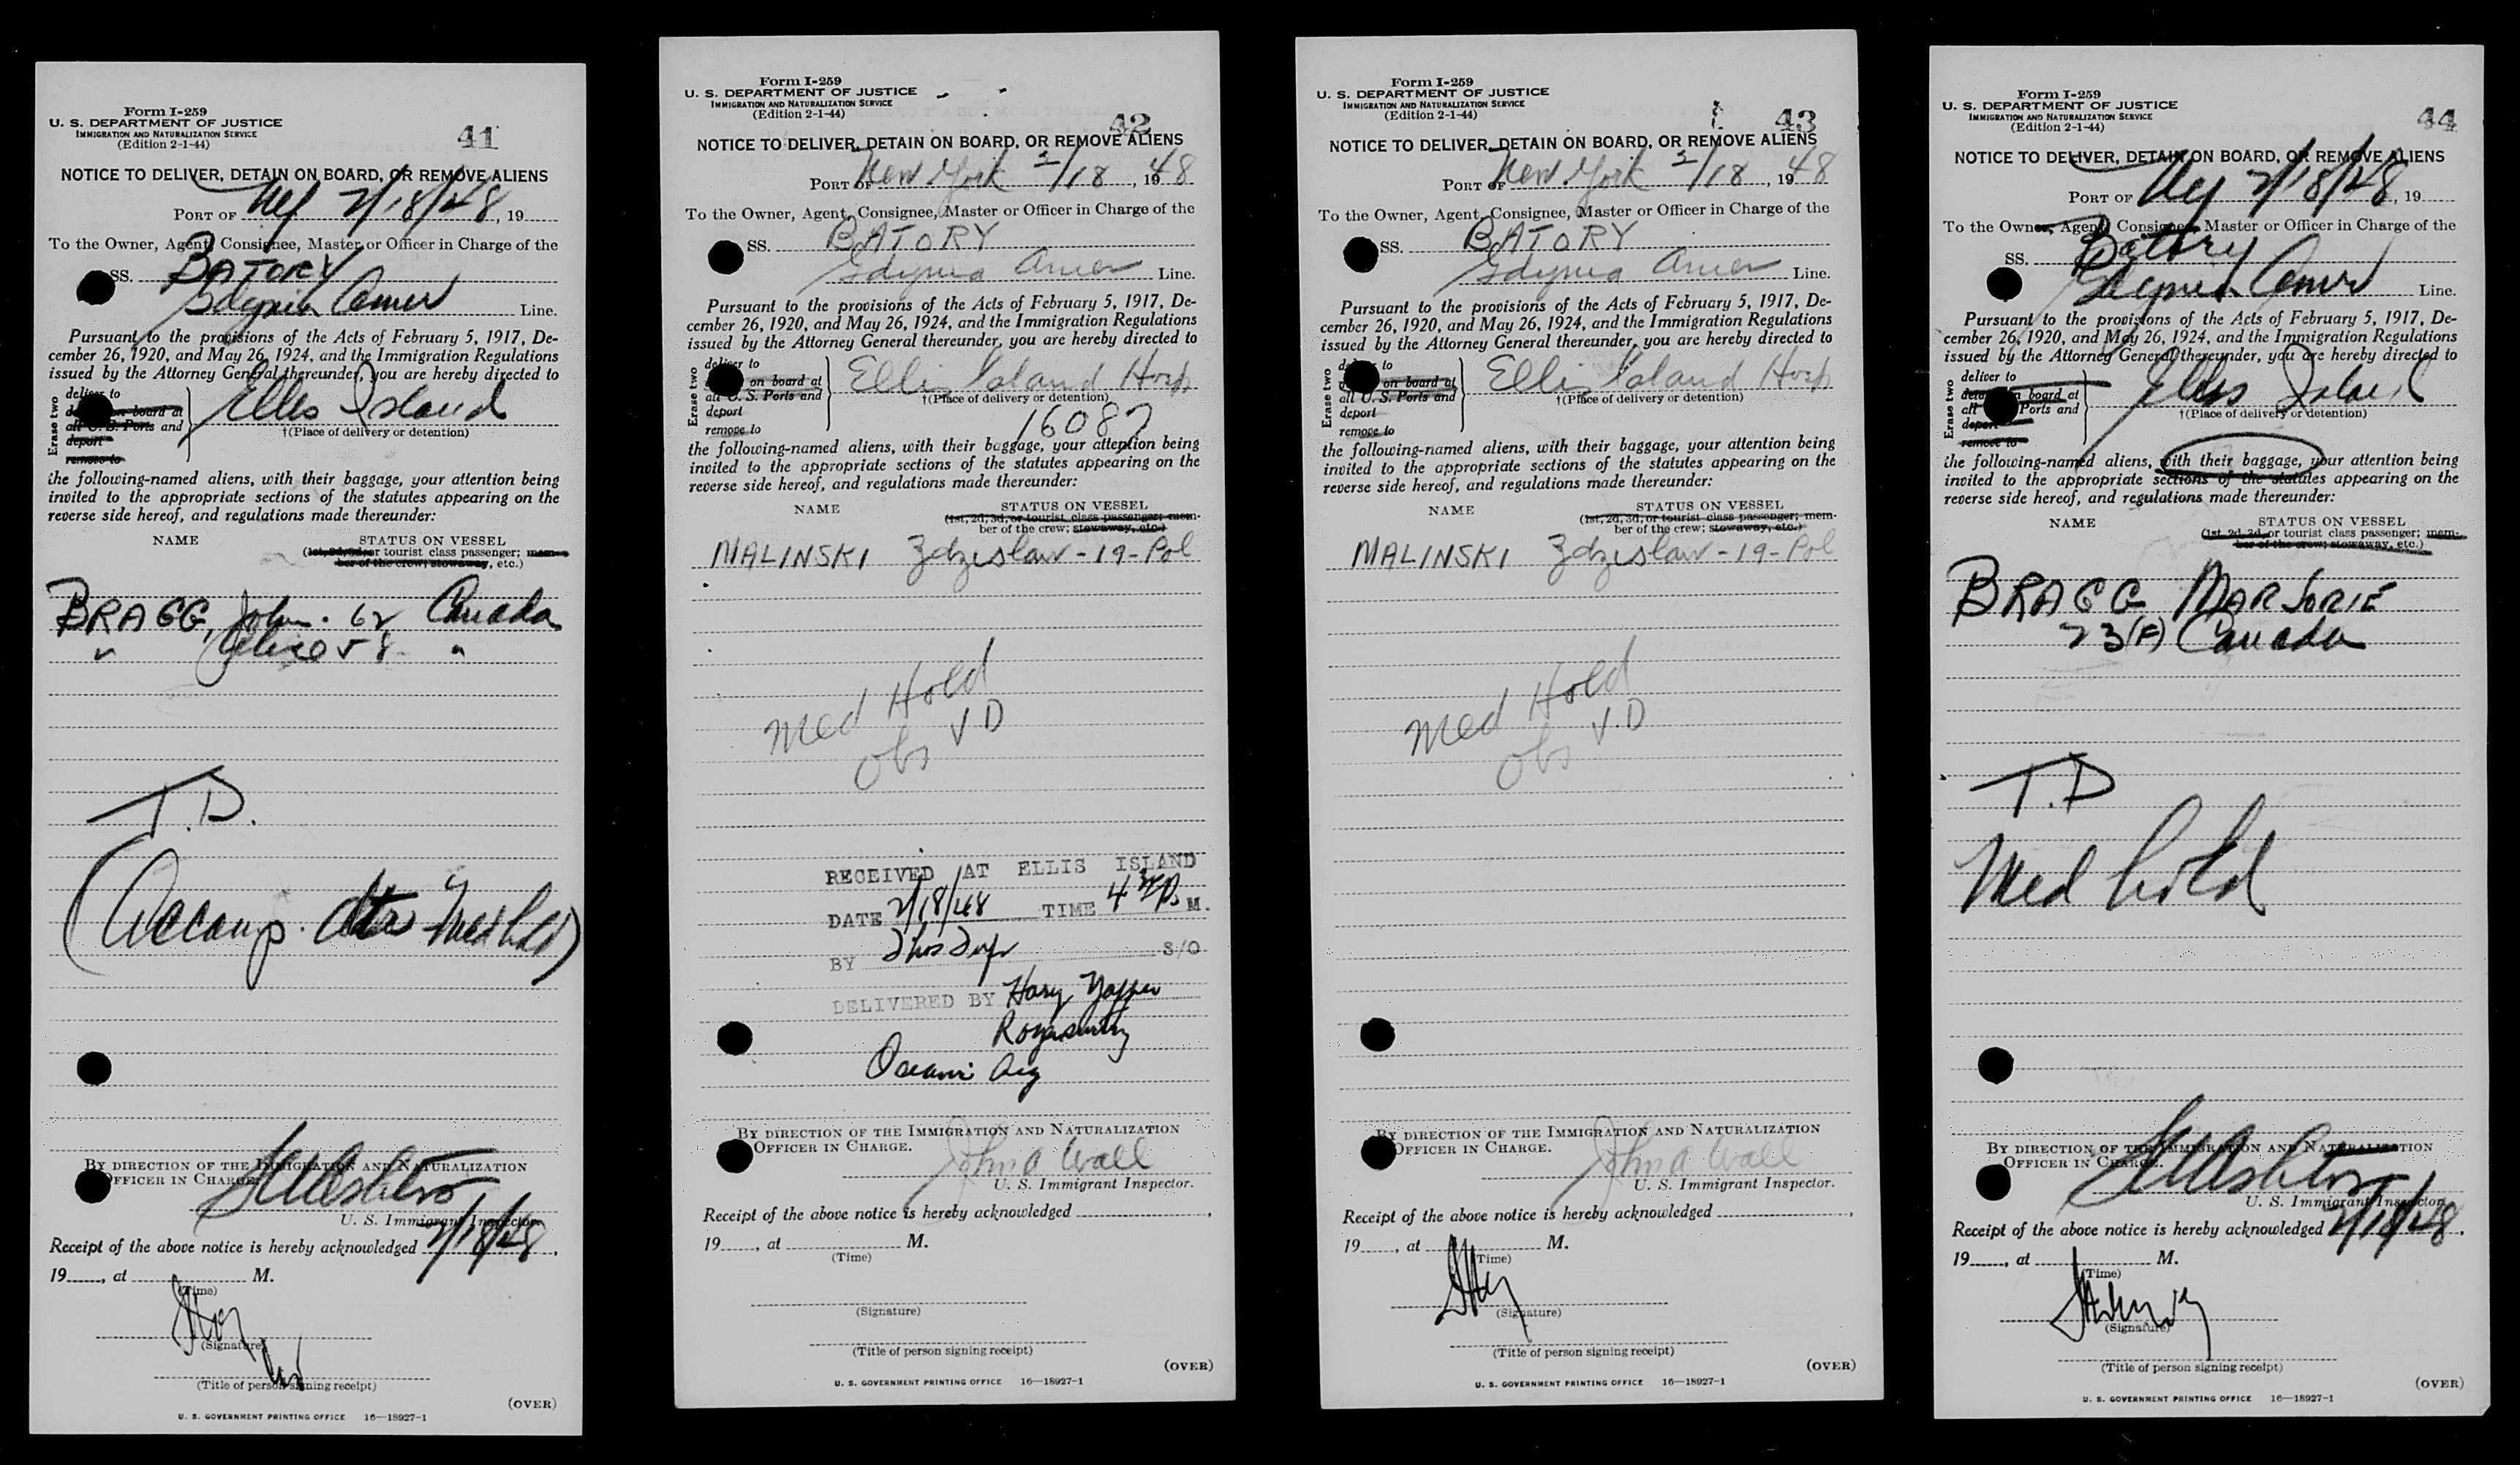 Form I-259
U. S. DEPARTMENT OF JUSTICE
IMMIGRATION AND NATURALIZATION SERVICE
(Edition 2-1-44)
41
NOTICE TO DELIVER, DETAIN ON BOARD, OR REMOVE ALIENS
PORT OF NY 2/18/48, 19
To the Owner, Agent, Consignee, Master or Officer in Charge of the
SS. BATORY
Gdynia Amer Line.
Pursuant to the provisions of the Acts of February 5, 1917, De-
cember 26, 1920, and May 26, 1924, and the Immigration Regulations
issued by the Attorney General thereunder, you are hereby directed to
Erase two
deliver to
on board at
all U. S. Ports and
deport
remove to
Ellis Island
†(Place of delivery or detention)
the following-named aliens, with their baggage, your attention being
invited to the appropriate sections of the statutes appearing on the
reverse side hereof, and regulations made thereunder:
NAME STATUS ON VESSEL
(1st, 2d, 3d, or tourist class passenger; mem-
ber of the crew; stowaway, etc.)
BRAGG, John. 62 Canada
" Alice 58 "
T.D.
(Accomp. dtr Med hold)
BY DIRECTION OF THE IMMIGRATION AND NATURALIZATION
OFFICER IN CHARGE.
U. S. Immigrant Inspector.
Receipt of the above notice is hereby acknowledged 2/18/48,
19, at M.
(Time)
(Signature)
(Title of person signing receipt)
(OVER)
U. S. GOVERNMENT PRINTING OFFICE 16—18927-1
Form I-259
U. S. DEPARTMENT OF JUSTICE
IMMIGRATION AND NATURALIZATION SERVICE
(Edition 2-1-44)
42
NOTICE TO DELIVER, DETAIN ON BOARD, OR REMOVE ALIENS
PORT OF New York 2/18, 1948
To the Owner, Agent, Consignee, Master or Officer in Charge of the
SS. BATORY
Gdynia Amer Line.
Pursuant to the provisions of the Acts of February 5, 1917, De-
cember 26, 1920, and May 26, 1924, and the Immigration Regulations
issued by the Attorney General thereunder, you are hereby directed to
Erase two
deliver to
on board at
all U. S. Ports and
deport
remove to
Ellis Island Hosp
†(Place of delivery or detention)
16087
the following-named aliens, with their baggage, your attention being
invited to the appropriate sections of the statutes appearing on the
reverse side hereof, and regulations made thereunder:
NAME STATUS ON VESSEL
(1st, 2d, 3d, or tourist class passenger; mem-
ber of the crew; stowaway, etc.)
MALINSKI Zdzislaw - 19 - Pol
Med Hold
Obs V.D
RECEIVED AT ELLIS ISLAND
DATE 2/18/48 TIME 4 30 P. M.
BY S/O
DELIVERED BY Harry
BY DIRECTION OF THE IMMIGRATION AND NATURALIZATION
OFFICER IN CHARGE.
John A Wall
U. S. Immigrant Inspector.
Receipt of the above notice is hereby acknowledged ,
19, at M.
(Time)
(Signature)
(Title of person signing receipt)
(OVER)
U. S. GOVERNMENT PRINTING OFFICE 16—18927-1
Form I-259
U. S. DEPARTMENT OF JUSTICE
IMMIGRATION AND NATURALIZATION SERVICE
(Edition 2-1-44)
43
NOTICE TO DELIVER, DETAIN ON BOARD, OR REMOVE ALIENS
PORT OF New York 2/18, 1948
To the Owner, Agent, Consignee, Master or Officer in Charge of the
SS. BATORY
Gdynia Amer Line.
Pursuant to the provisions of the Acts of February 5, 1917, De-
cember 26, 1920, and May 26, 1924, and the Immigration Regulations
issued by the Attorney General thereunder, you are hereby directed to
Erase two
to
on board at
all U. S. Ports and
deport
remove to
Ellis Island Hosp
†(Place of delivery or detention)
the following-named aliens, with their baggage, your attention being
invited to the appropriate sections of the statutes appearing on the
reverse side hereof, and regulations made thereunder:
NAME STATUS ON VESSEL
(1st, 2d, 3d, or tourist class passenger; mem-
ber of the crew; stowaway, etc.)
MALINSKI Zdzislaw - 19 - Pol
Med Hold
Obs V.D
BY DIRECTION OF THE IMMIGRATION AND NATURALIZATION
OFFICER IN CHARGE.
John A Wall
U. S. Immigrant Inspector.
Receipt of the above notice is hereby acknowledged ,
19, at M.
(Time)
(Signature)
(Title of person signing receipt)
(OVER)
U. S. GOVERNMENT PRINTING OFFICE 16—18927-1
Form I-259
U. S. DEPARTMENT OF JUSTICE
IMMIGRATION AND NATURALIZATION SERVICE
(Edition 2-1-44)
44
NOTICE TO DELIVER, DETAIN ON BOARD, OR REMOVE ALIENS
PORT OF NY 2/18/48, 19
To the Owner, Agent, Consignee, Master or Officer in Charge of the
SS. Batory
Gdynia Amer Line.
Pursuant to the provisions of the Acts of February 5, 1917, De-
cember 26, 1920, and May 26, 1924, and the Immigration Regulations
issued by the Attorney General thereunder, you are hereby directed to
Erase two
deliver to
board at
all Ports and
deport
remove to
Ellis Island
†(Place of delivery or detention)
the following-named aliens, with their baggage, your attention being
invited to the appropriate sections of the statutes appearing on the
reverse side hereof, and regulations made thereunder:
NAME STATUS ON VESSEL
(1st, 2d, 3d, or tourist class passenger; mem-
ber of the crew; stowaway, etc.)
BRAGG MARJORIE
23 (F) Canada
T.D
Med hold
BY DIRECTION OF THE IMMIGRATION AND NATURALIZATION
OFFICER IN CHARGE.
U. S. Immigrant Inspector.
Receipt of the above notice is hereby acknowledged 2/18/48,
19, at M.
(Time)
(Signature)
(Title of person signing receipt)
(OVER)
U. S. GOVERNMENT PRINTING OFFICE 16—18927-1